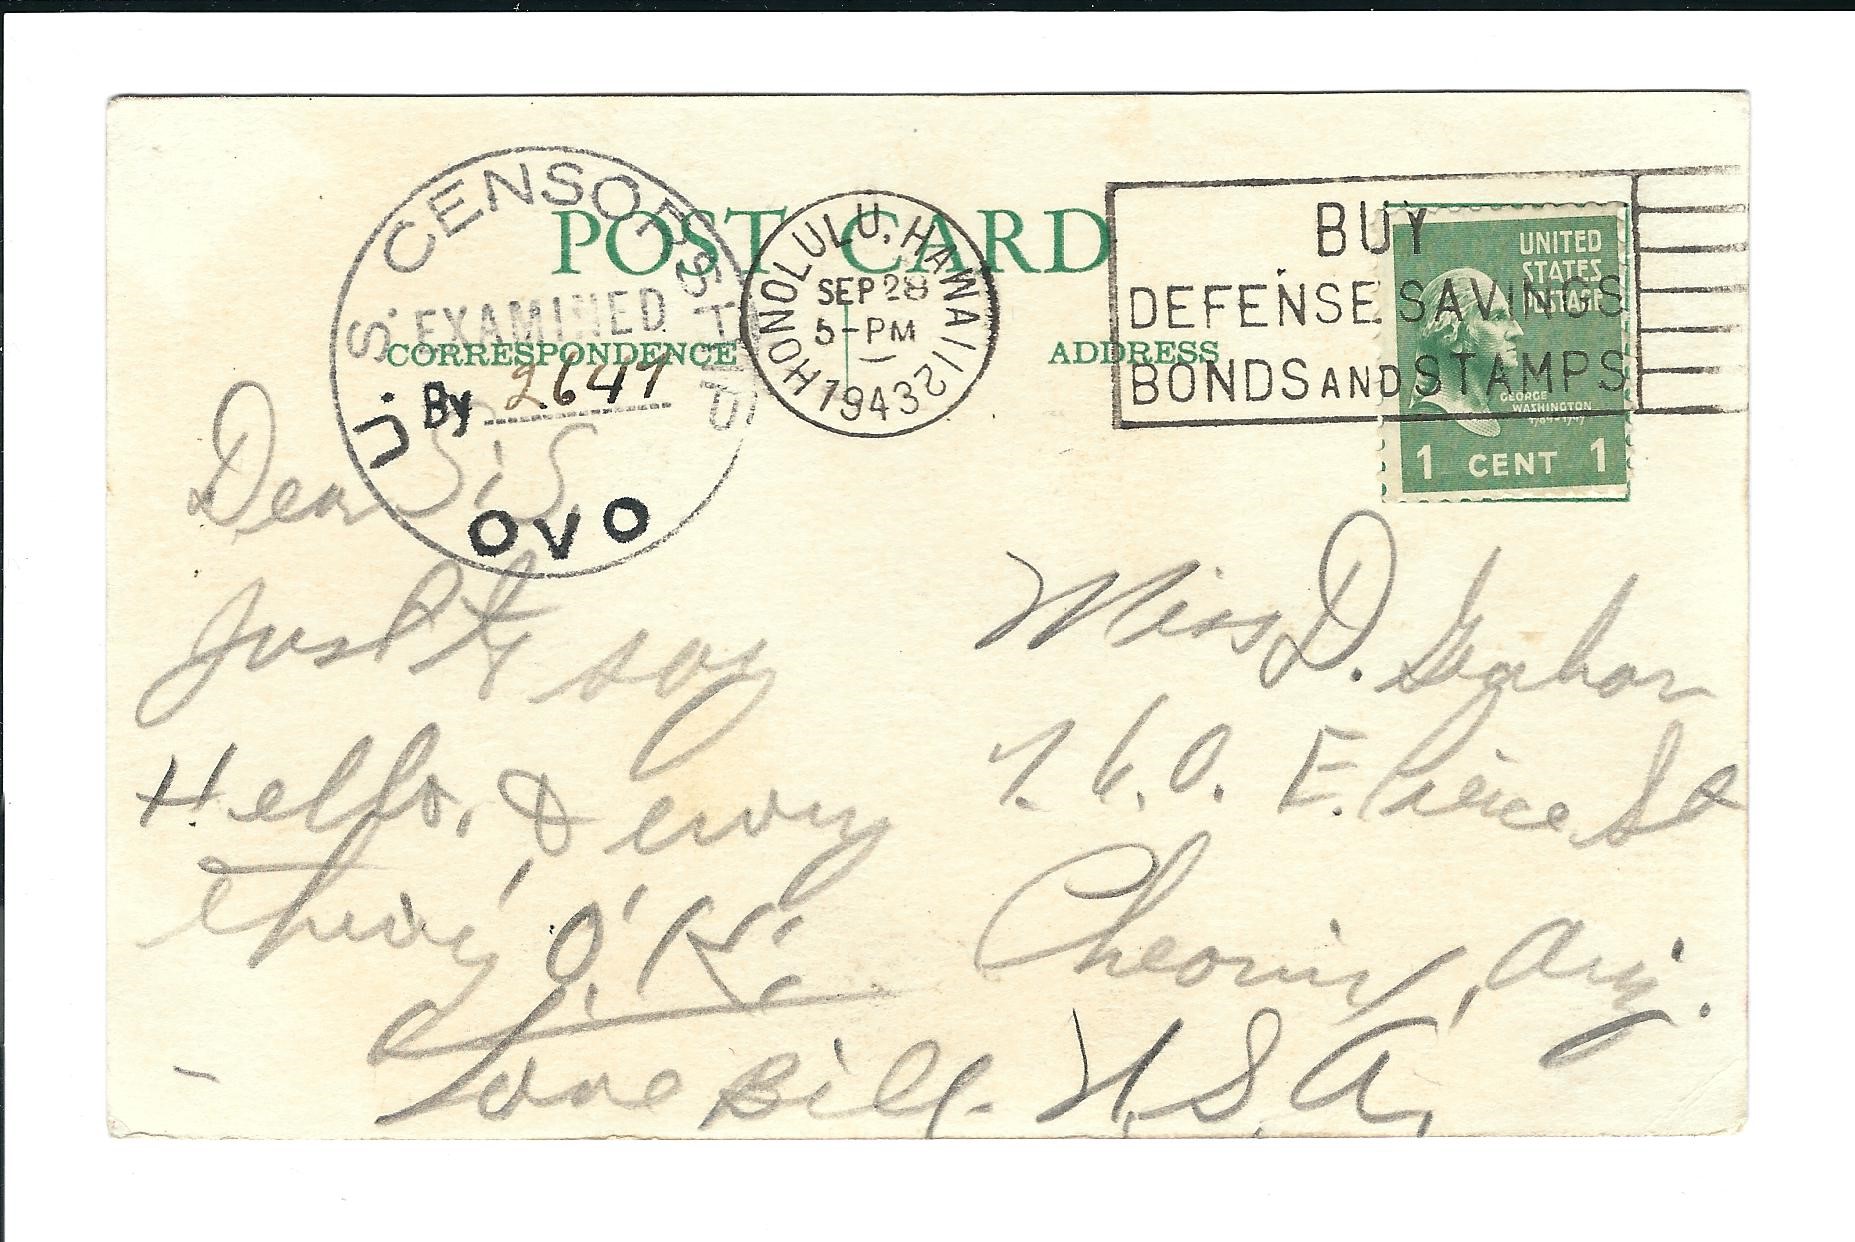 POST CARD
CORRESPONDENCE
ADDRESS
U. S. CENSORSHIP
EXAMINED
By 2647
OVO
HONOLULU, HAWAII
SEP 28
5-PM
1943
2
BUY
DEFENSE SAVINGS
BONDS AND STAMPS
UNITED
STATES
POSTAGE
GEORGE
WASHINGTON
1 CENT 1
Dear Sis
Just to say
Hello, & every
thing O.K.
Love Bill.
Miss D. Grahan
E. Pierce St
Pheonix, Ariz.
U.S.A.